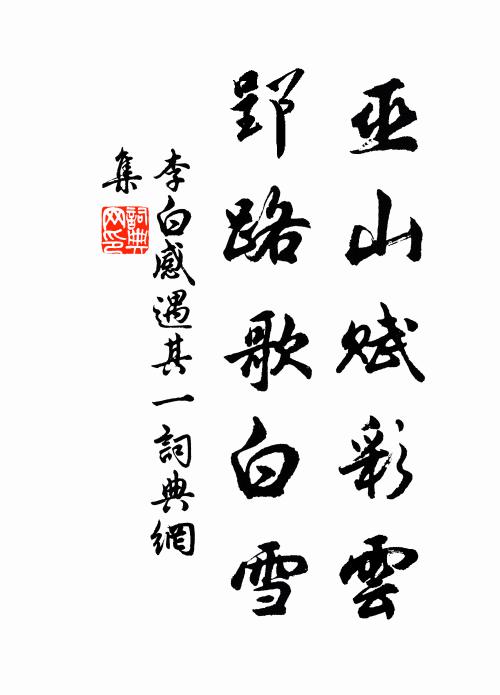 巫山賦彩雲
郢路歌白雪
李白感遇其一詞典網
集
詞典
网印